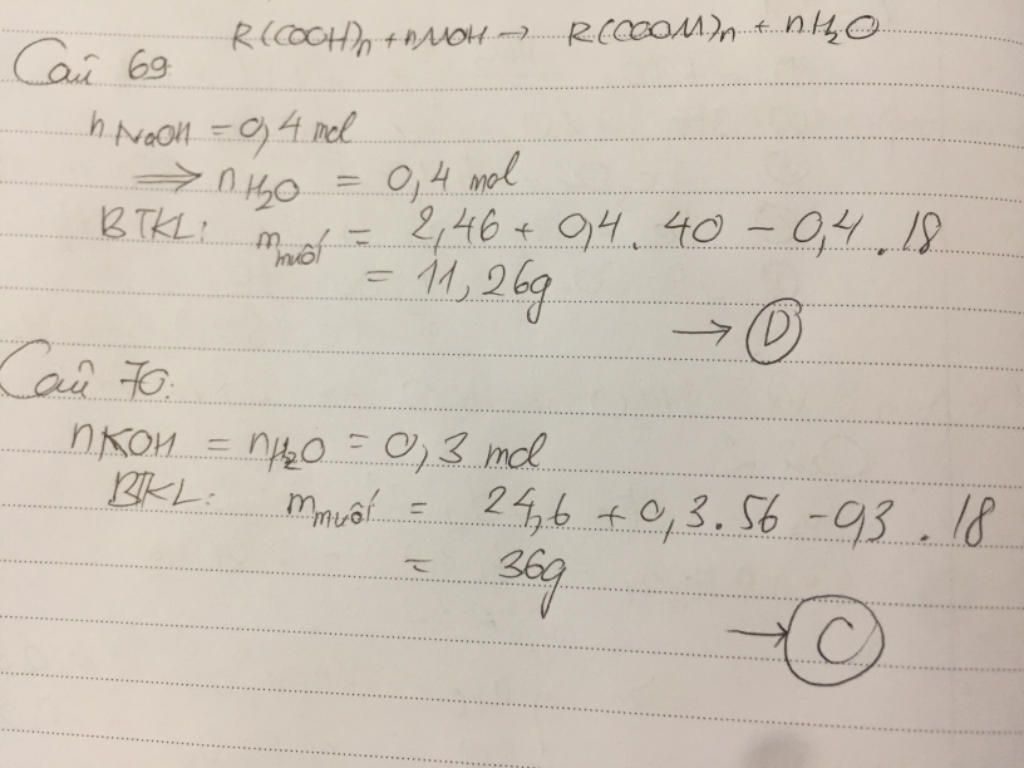 R(COOH)n + nMOH → R(COOM)n + nH2O
Câu 69
nNaOH = 0,4 mol
⇒ nH2O = 0,4 mol
BTKL: mmuối = 2,46 + 0,4 . 40 - 0,4 . 18
= 11,26g
→ D
Câu 70:
nKOH = nH2O = 0,3 mol
BTKL: mmuối = 24,6 + 0,3 . 56 - 0,3 . 18
= 36g
→ C